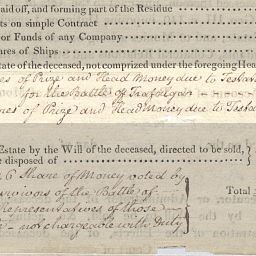 aid off, and forming part of the Residue
ts on simple Contract
or Funds of any Company
ares of Ships
state of the deceased, not comprized under the foregoing Hea
es of Prize and Head Money due to Testat
for the Battle of Trafalgar
res of Prize and Head Money due to Testa
Estate by the Will of the deceased, directed to be sold,
e disposed of
Total
6 Share of Money voted by
urvivors of the Battle of
Representatives of those
not chargeable with Duty